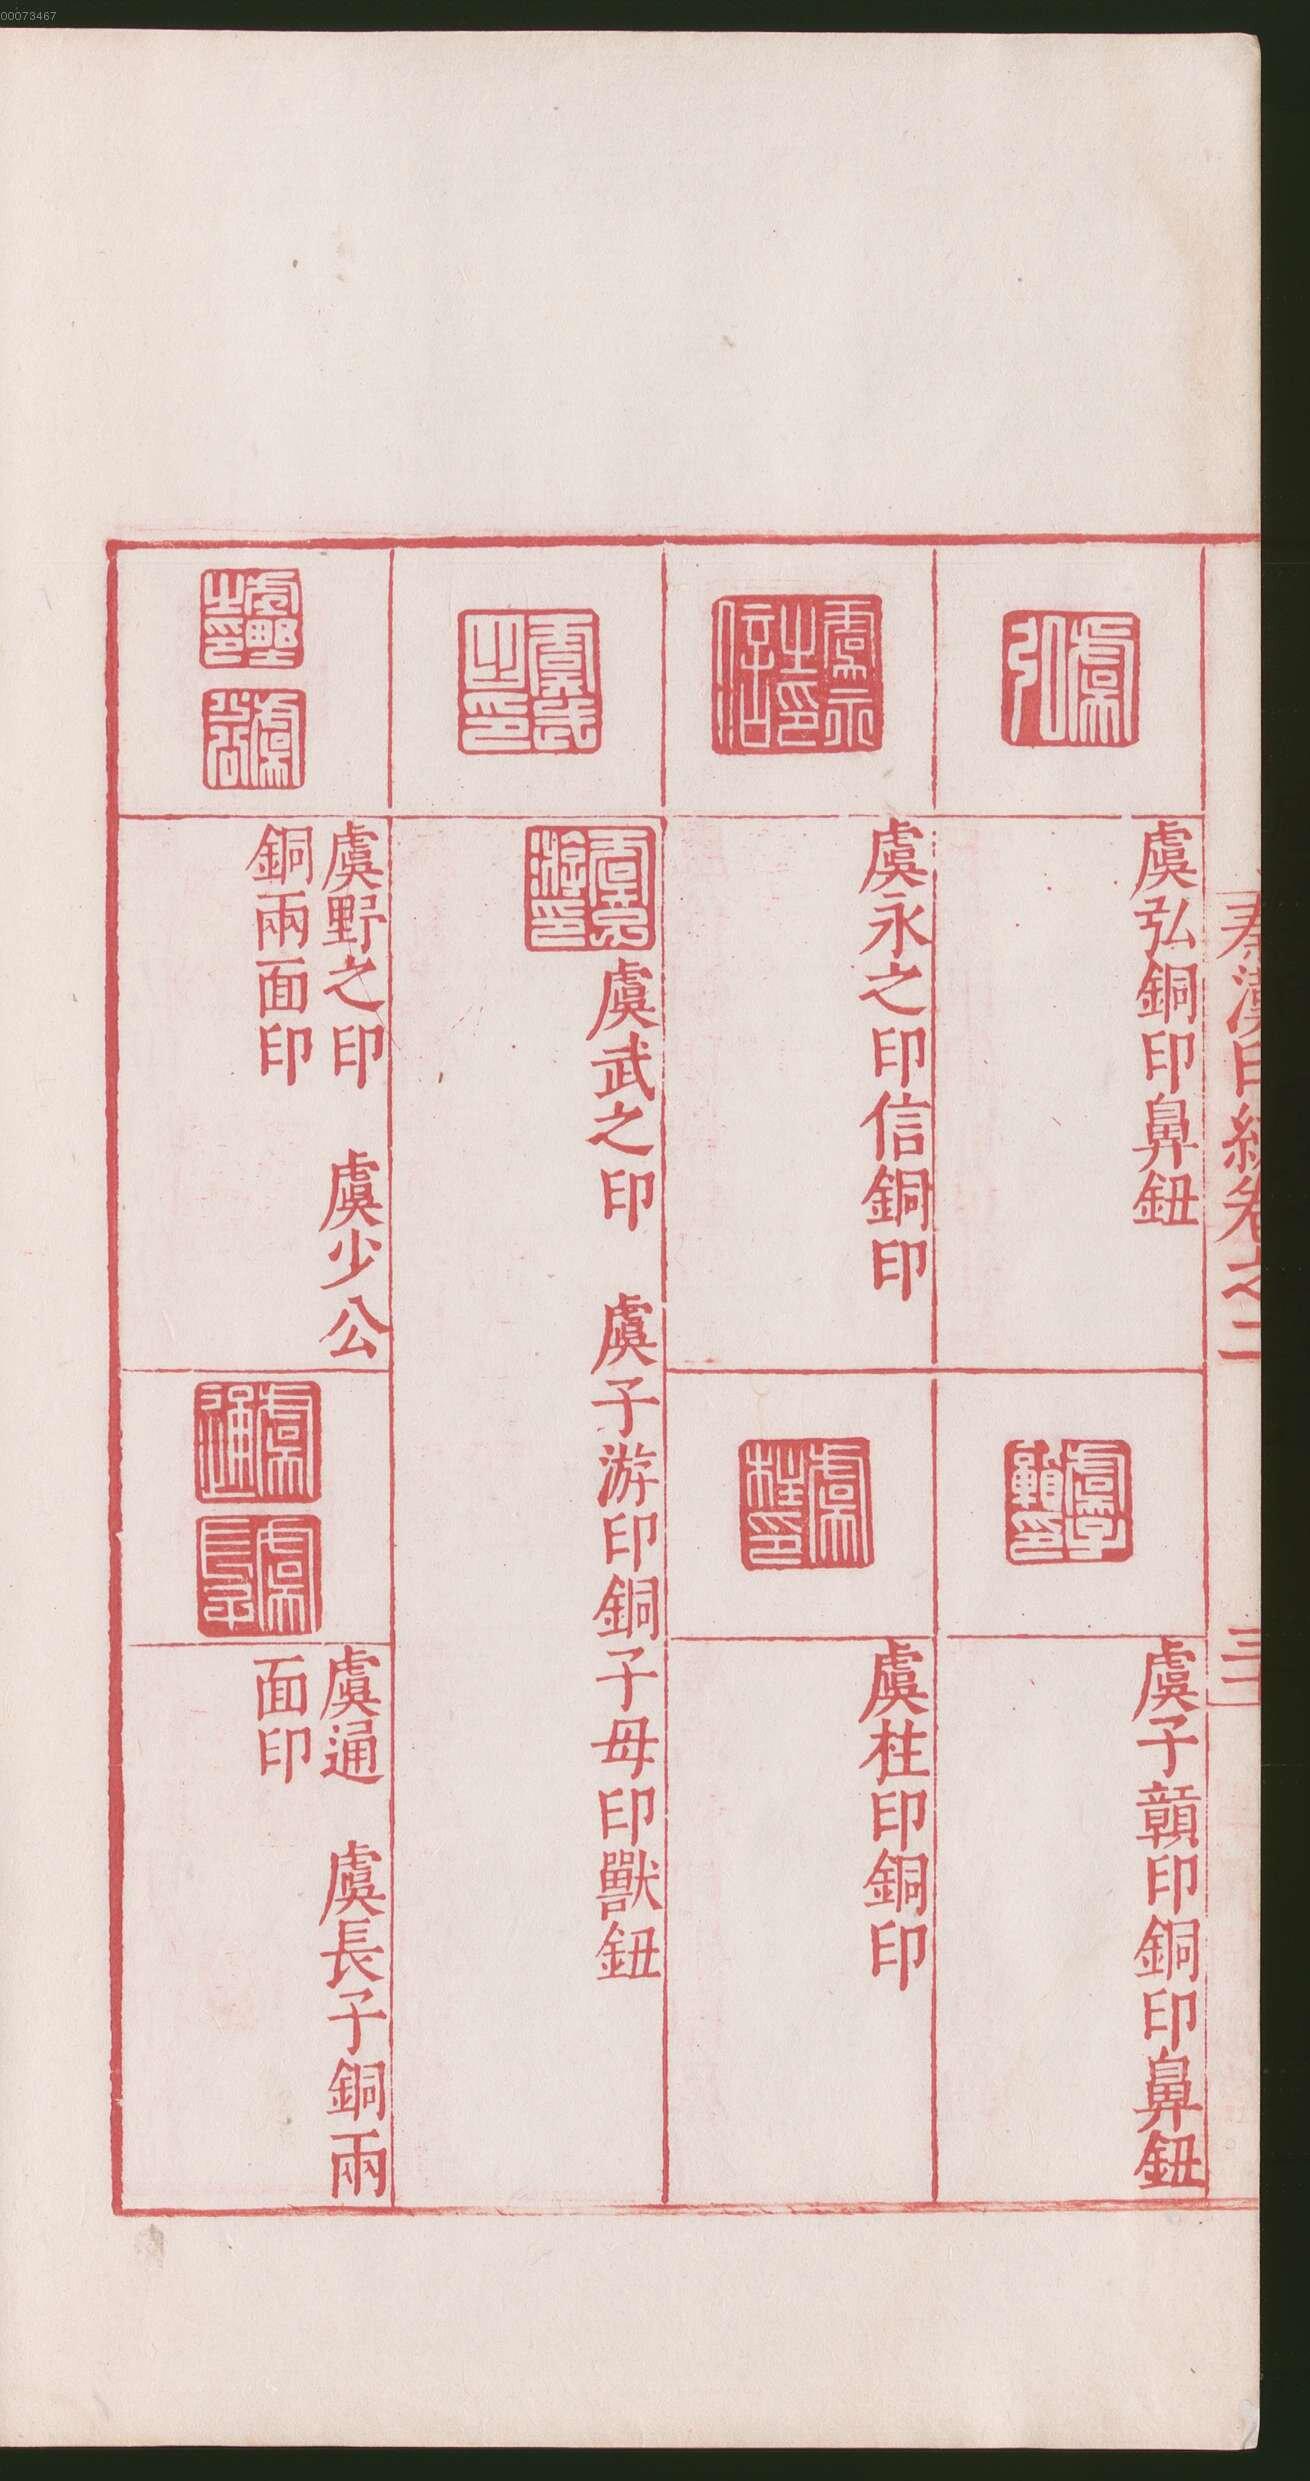 00073467
秦漢印統卷之二
三
虞弘銅印鼻鈕
虞子贑印銅印鼻鈕
虞永之印信銅印
虞柱印銅印
虞武之印 虞子游印銅子母印獸鈕
虞野之印 虞少公
銅兩面印
虞通 虞長子銅兩
面印